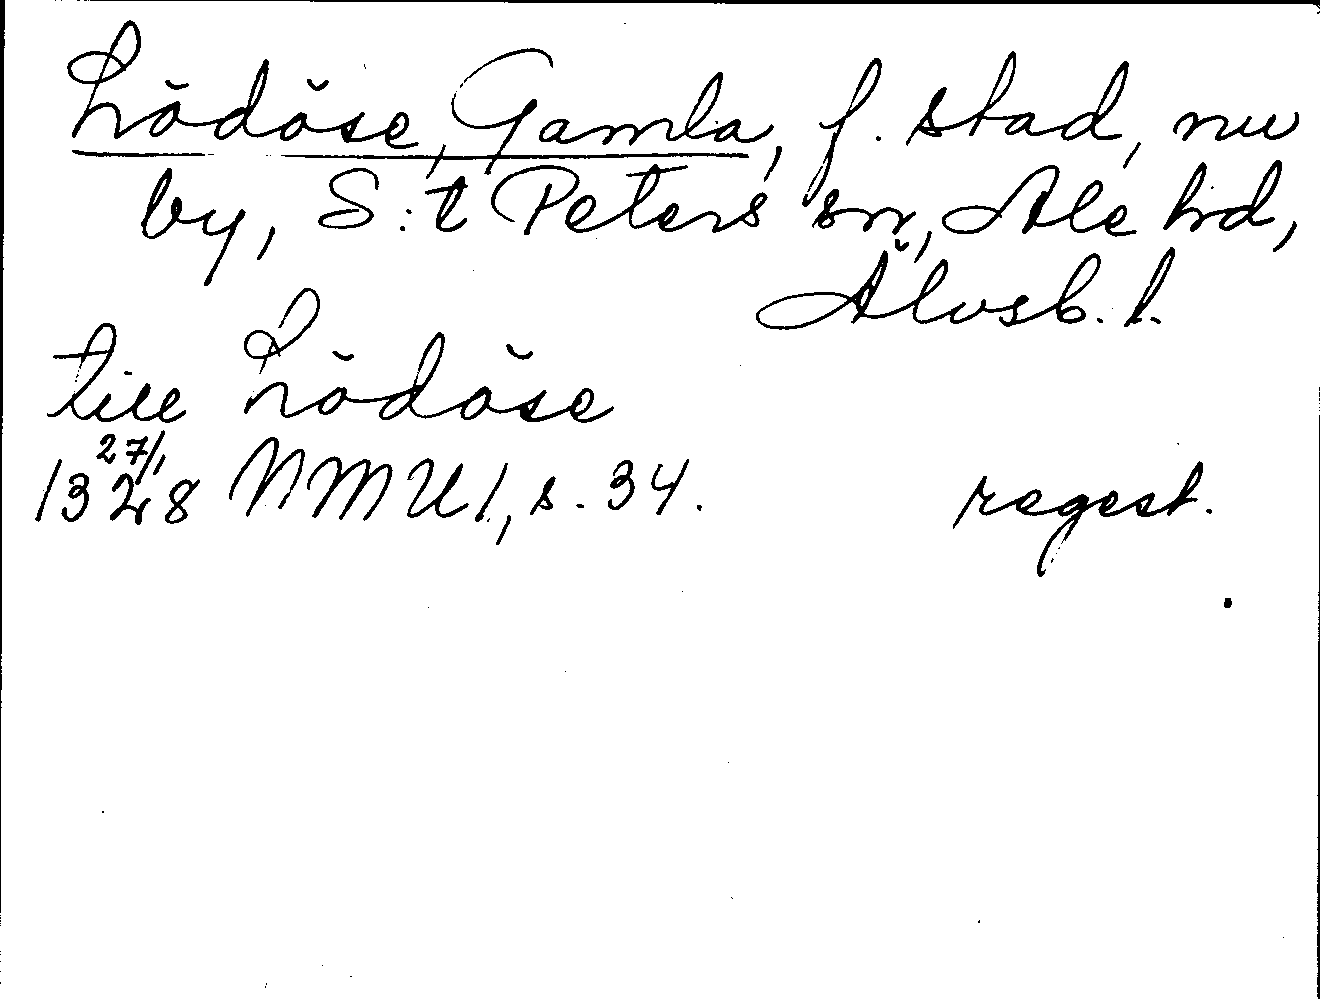 Lödöse, Gamla, f. stad, nu
by, S:t Peters sn, Ale hd,
Älvsb. l.
till Lödöse
27/1
1328 NMU 1, s. 34. regest.